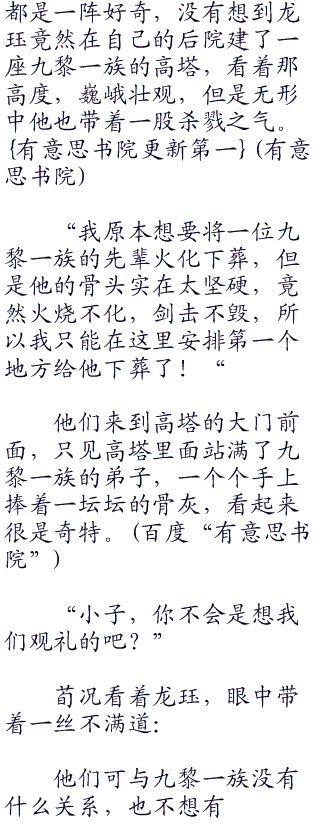 都是一阵好奇，没有想到龙
珏竟然在自己的后院建了一
座九黎一族的高塔，看着那
高度，巍峨壮观，但是无形
中他也带着一股杀戮之气。
{有意思书院更新第一} (有意
思书院)
“我原本想要将一位九
黎一族的先辈火化下葬，但
是他的骨头实在太坚硬，竟
然火烧不化，剑击不毁，所
以我只能在这里安排第一个
地方给他下葬了！“
他们来到高塔的大门前
面，只见高塔里面站满了九
黎一族的弟子，一个个手上
捧着一坛坛的骨灰，看起来
很是奇特。(百度“有意思书
院”)
“小子，你不会是想我
们观礼的吧？”
荀况看着龙珏，眼中带
着一丝不满道：
他们可与九黎一族没有
什么关系，也不想有